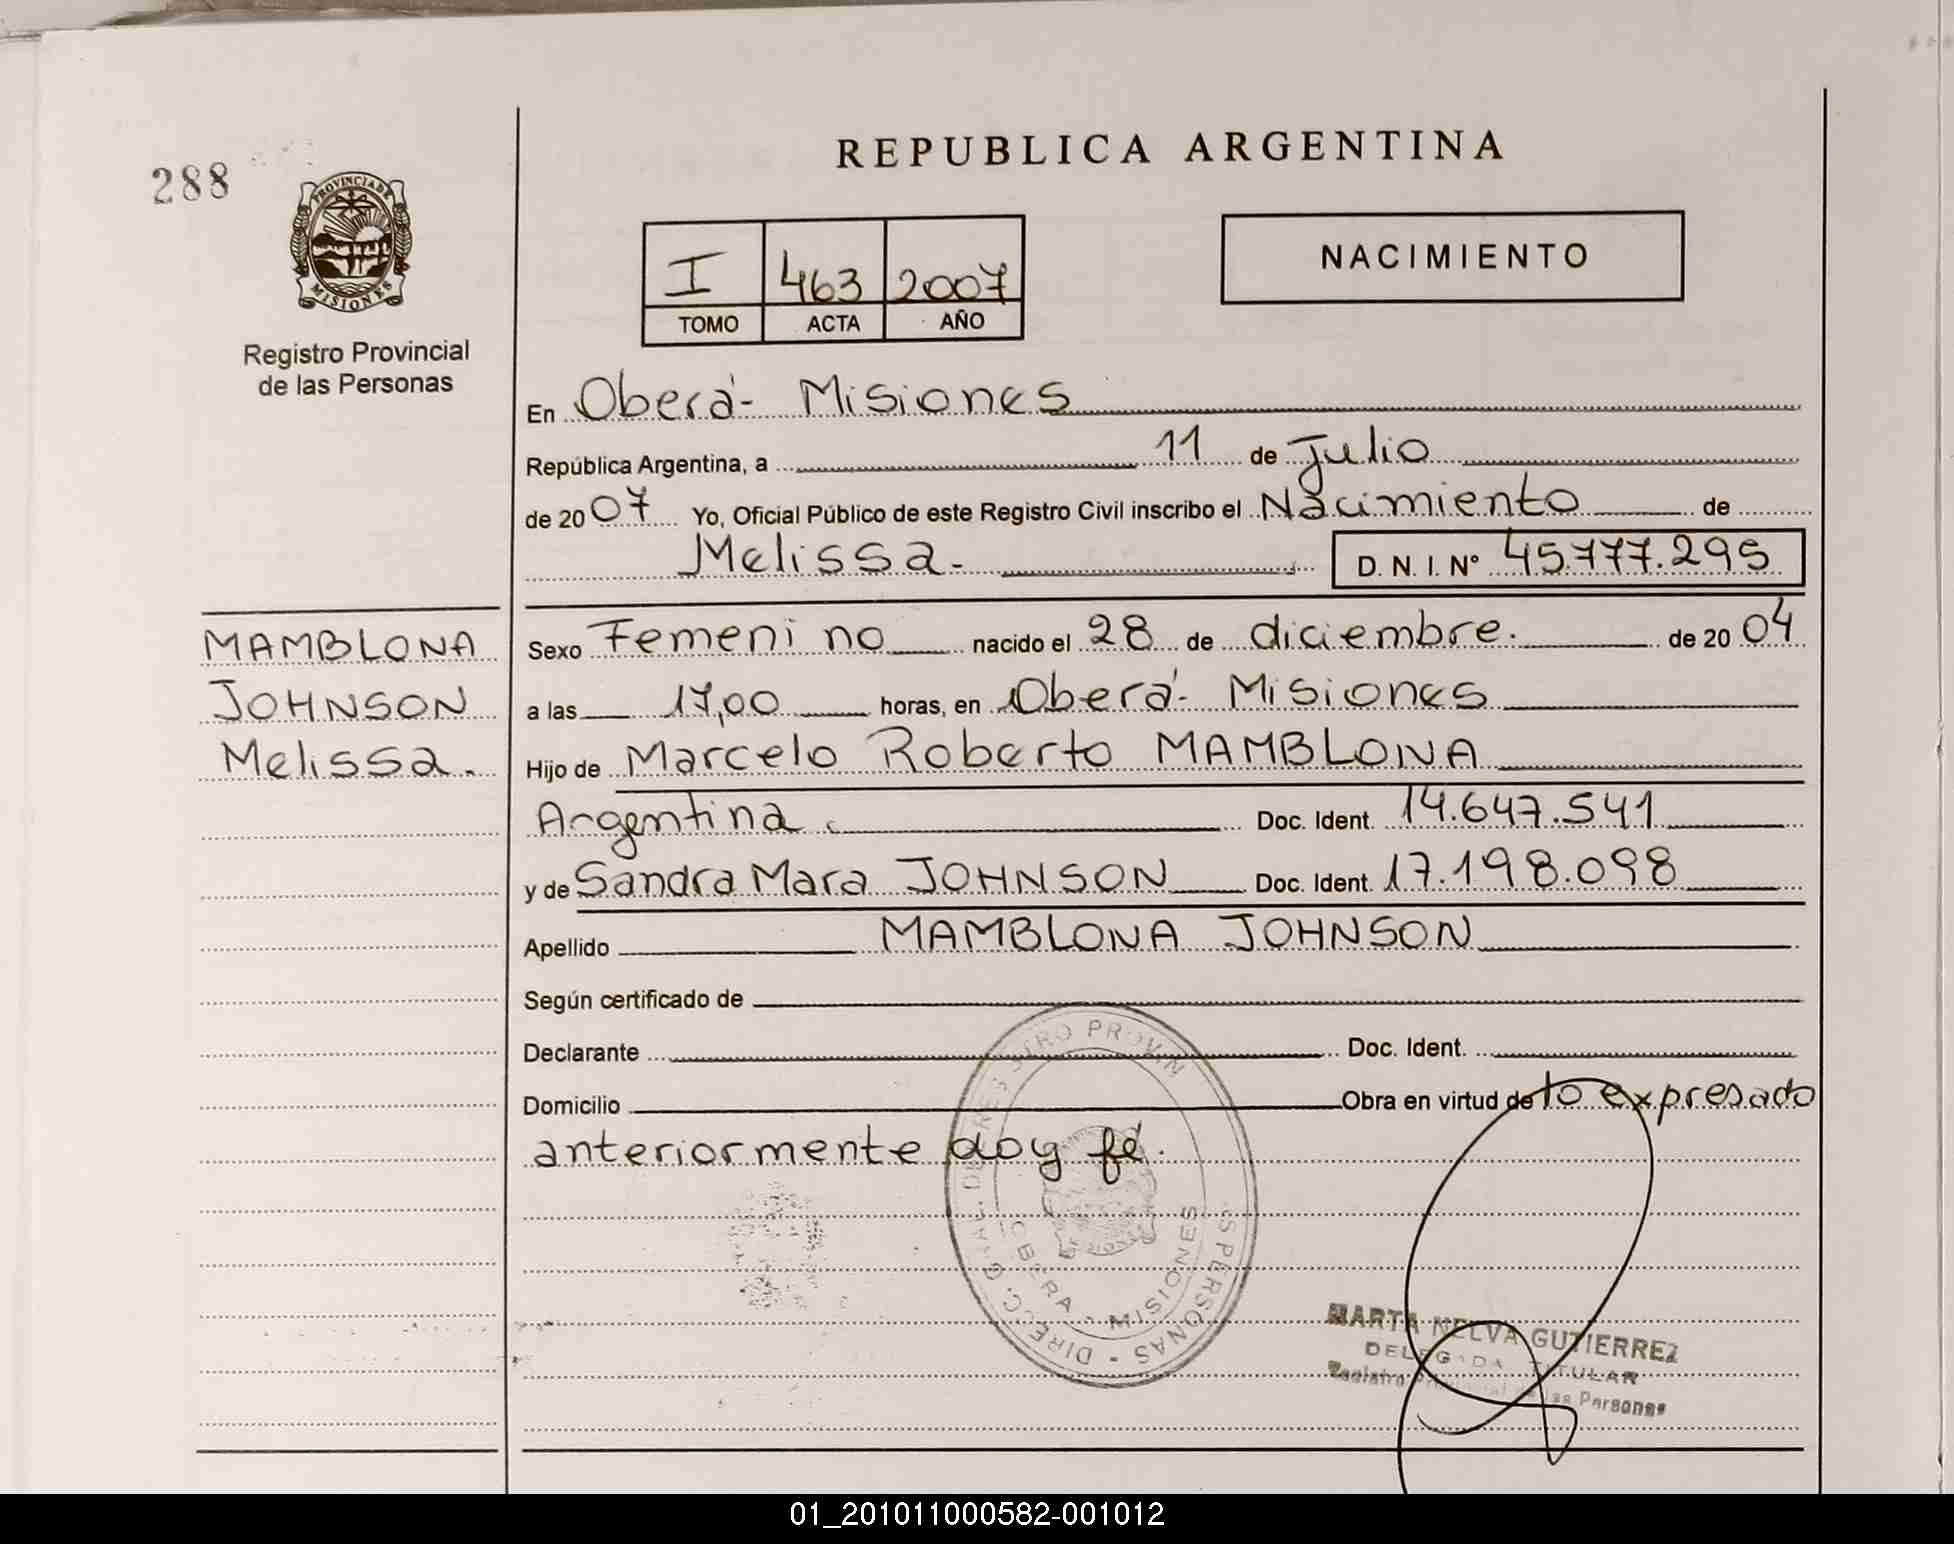 288
PROVINCIA DE
MISIONES
Registro Provincial
de las Personas
REPUBLICA ARGENTINA
I 463 2007
TOMO ACTA AÑO
NACIMIENTO
En Oberá - Misiones
República Argentina, a 11 de Julio
de 2007 Yo, Oficial Público de este Registro Civil inscribo el Nacimiento de
Melissa.- D. N. I. Nº 45.777.295
MAMBLONA
JOHNSON
Melissa.
Sexo Femenino nacido el 28 de diciembre. de 2004
a las 17,00 horas, en Oberá - Misiones
Hijo de Marcelo Roberto MAMBLONA
Argentina. Doc. Ident. 14.647.541
y de Sandra Mara JOHNSON Doc. Ident. 17.198.098
Apellido MAMBLONA JOHNSON
Según certificado de
Declarante Doc. Ident.
Domicilio Obra en virtud de lo expresado
anteriormente doy fé.
PERSONAS - DIRECC. GRAL.
OBERA - MISIONES
MARTA NELVA GUTIERREZ
DELEGADA TITULAR
Registro Provincial de las Personas
01_201011000582-001012